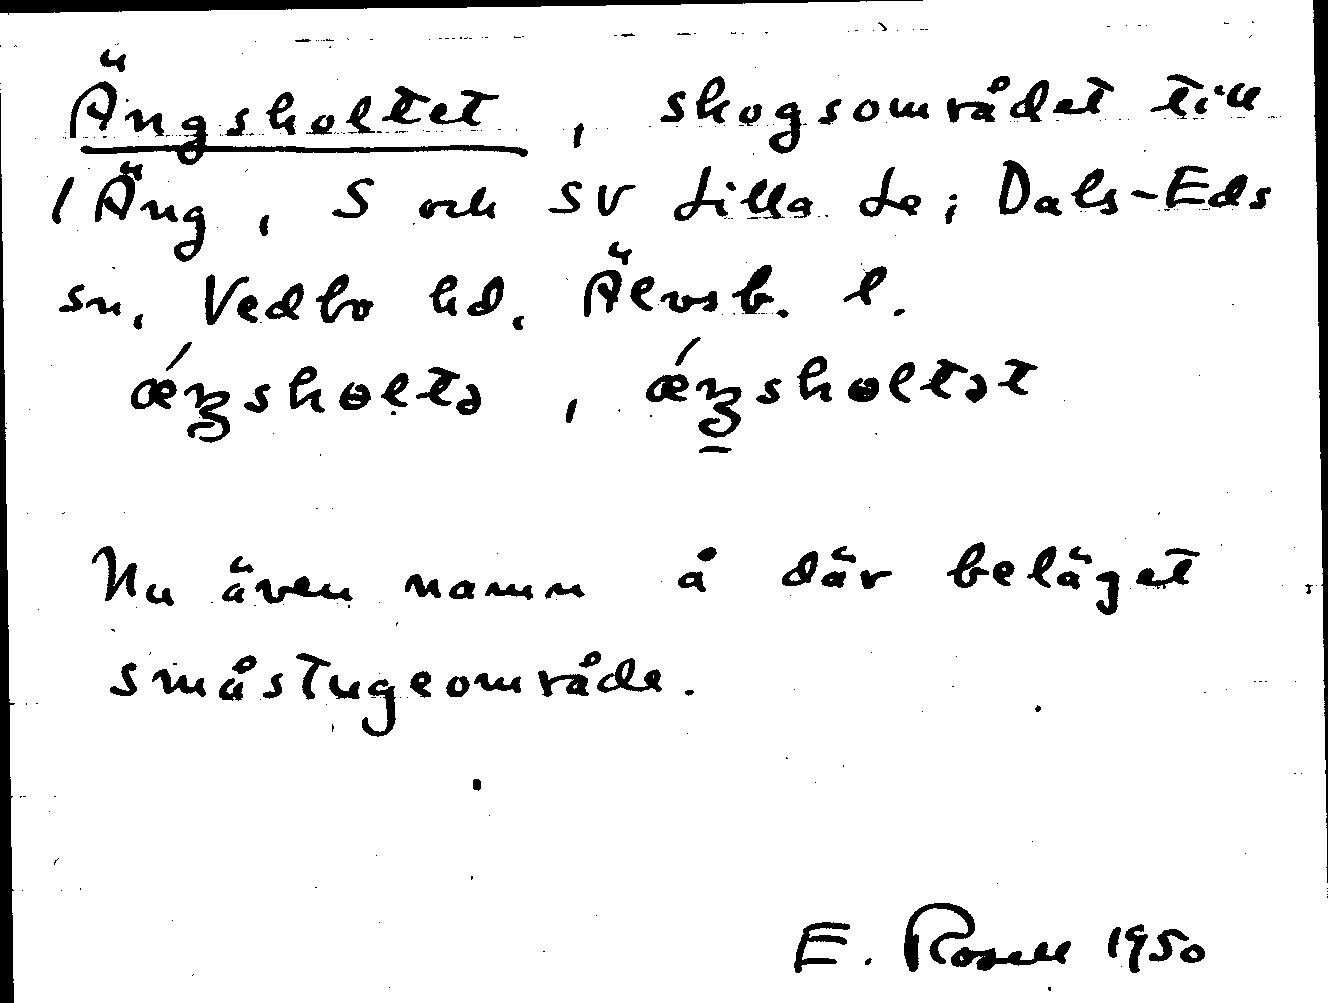 Ängsholtet, skogsområdet till
1 Äng, S och SV Lilla Le; Dals-Eds
sn, Vedbo hd, Älvsb. l.
Nu även namn å där beläget
småstugeområde.
E. Rosell 1950